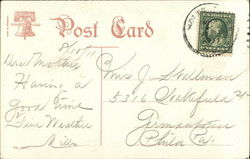 Post Card
8/15/11
Dear Mother
Having a
good time
Fine Weather
Miles
Mrs J Wellman
5316 Wakefield St
Germantown
Phila Pa.